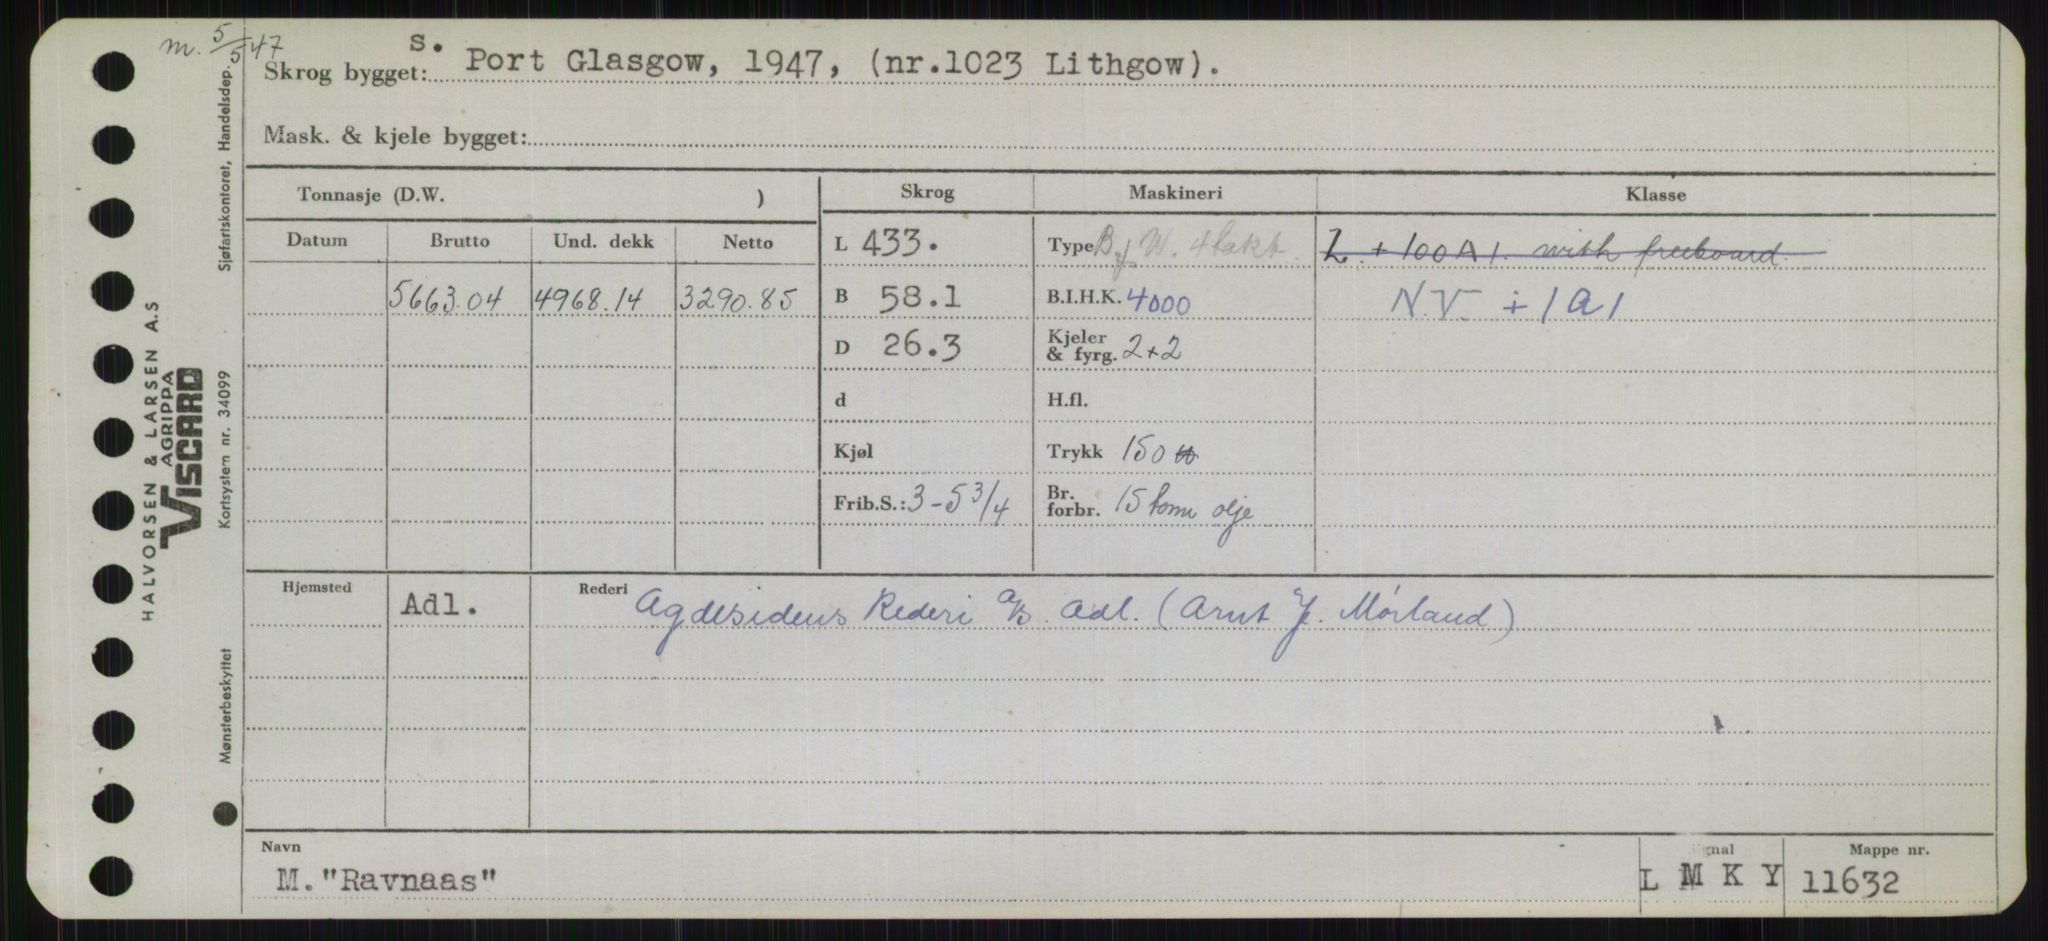 m. 5/5 47
s.
Skrog bygget: Port Glasgow, 1947, (nr.1023 Lithgow).
Mask. & kjele bygget:
Tonnasje (D.W. )
Skrog
Maskineri
Klasse
Datum
Brutto
Und. dekk
Netto
L 433.
Type B. & W. 4 takt
L + 100 A 1. with freeboard
5663.04
4968.14
3290.85
B 58.1
B.I.H.K. 4000
N.V. + 1A1
D 26.3
Kjeler
& fyrg. 2+2
d
H.fl.
Kjøl
Trykk 150 lb
Frib.S.: 3-5 3/4
Br.
forbr. 15 tonn olje
Hjemsted
Adl.
Rederi
Agdesidens Rederi A/S. Adl. (Arnt J. Mørland)
Navn
M."Ravnaas"
Signal
L M K Y
Mappe nr.
11632
HALVORSEN & LARSEN A.S
AGRIPPA
VISCARD
Sjøfartskontoret, Handelsdep.
Kortsystem nr. 34099
Mønsterbeskyttet